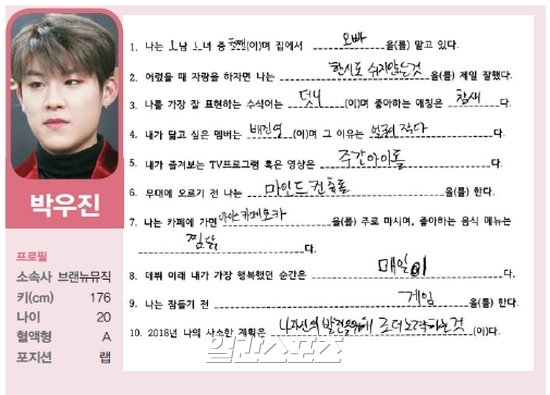 1. 나는 1남 1녀 중 첫째(이)며 집에서 오빠 을(를) 맡고 있다.
2. 어렸을 때 자랑을 하자면 나는 한시도 쉬지않는것 을(를) 제일 잘했다.
3. 나를 가장 잘 표현하는 수식어는 덧니 (이)며 좋아하는 애칭은 참새 다.
4. 내가 닮고 싶은 멤버는 배진영 (이)며 그 이유는 얼굴이 작다 다.
5. 내가 즐겨보는 TV프로그램 혹은 영상은 주간아이돌 다.
6. 무대에 오르기 전 나는 마인드 컨트롤 을(를) 한다.
7. 나는 카페에 가면 아이스카페모카 을(를) 주로 마시며, 좋아하는 음식 메뉴는
찜닭 다.
8. 데뷔 이래 내가 가장 행복했던 순간은 매일이 다.
9. 나는 잠들기 전 게임 을(를) 한다.
10. 2018년 나의 사소한 계획은 나자신의 발전을위해 더노력하는것 (이)다.
박우진
프로필
소속사 브랜뉴뮤직
키(cm) 176
나이 20
혈액형 A
포지션 랩
일간스포츠